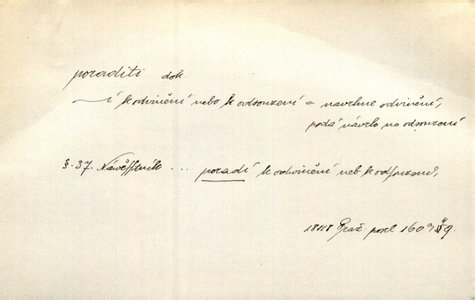 poraditi dok.
~ í k odvinění nebo k odsouzení = navrhne odvinění,
podá návrh na odsouzení
§. 37. Návěstník ... poradí k odvinění neb k odsouzení,
1848 posl. 160